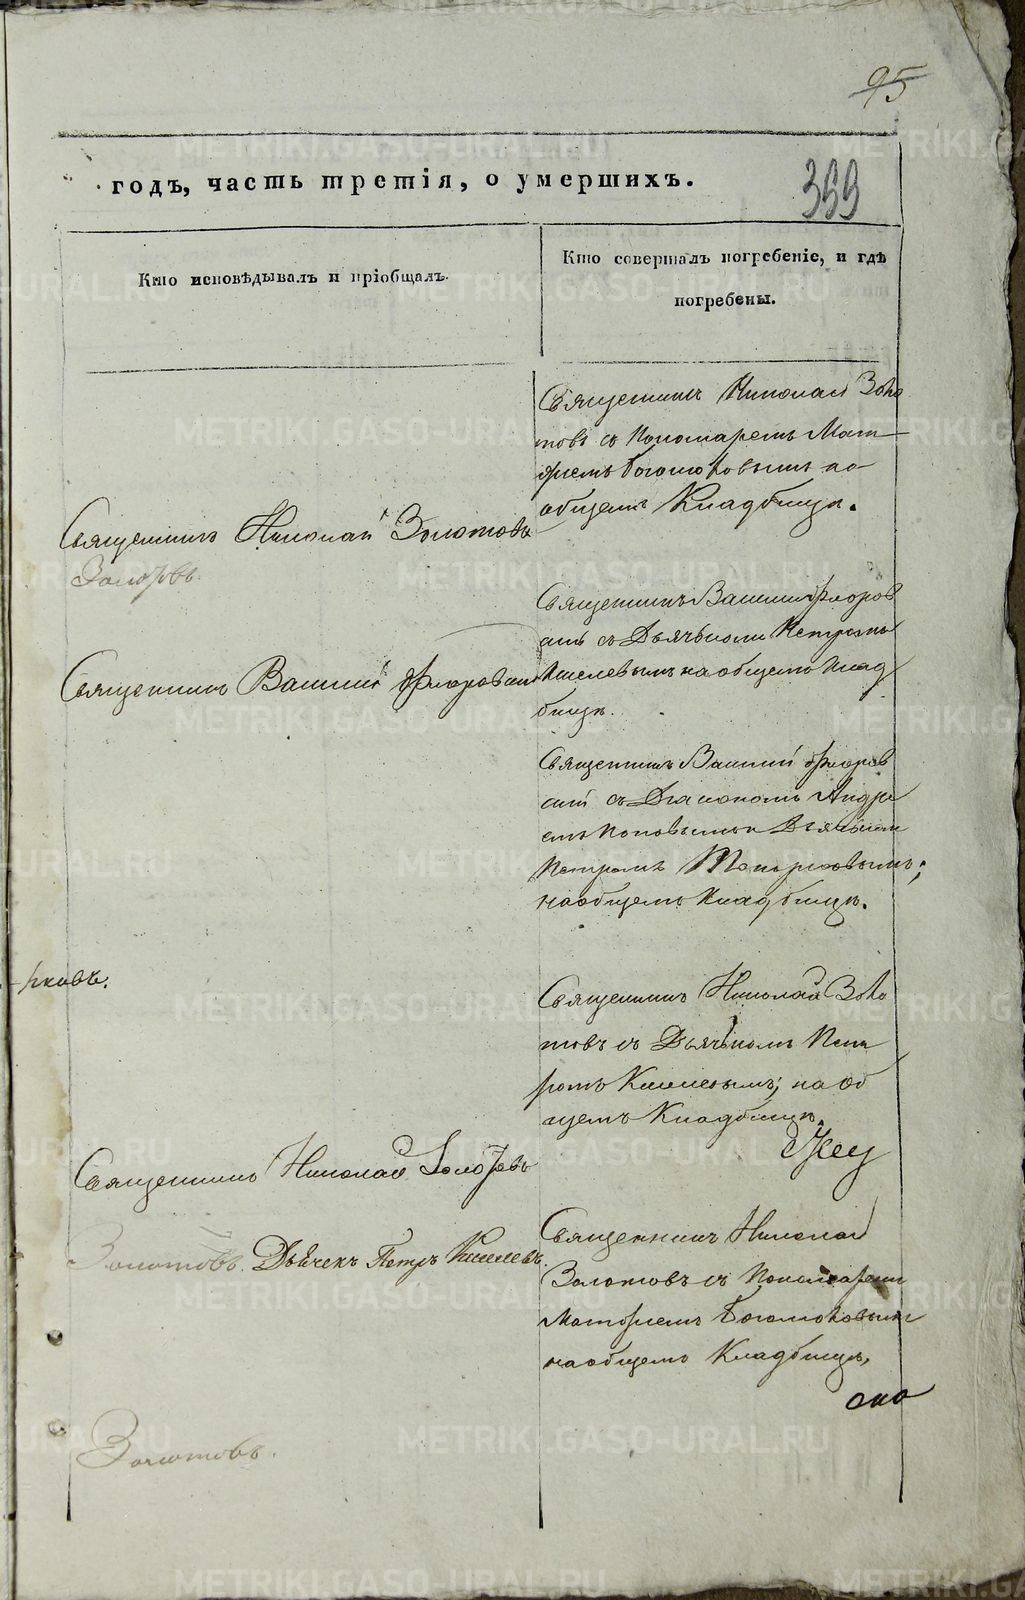 95
годъ, часть третія, о умершихъ.
399
Кто исповѣдывалъ и пріобщалъ.
Кто совершалъ погребеніе, и гдѣ
погребены.
Священникъ Николай Золо
товъ съ Пономаремъ Мат
фиемъ Богомоловымъ на
общемъ Кладбищѣ.
Священникъ Николай Золотовъ
Золотовъ.
Священникъ Василий Флоров
ский съ Дьячькомъ Петромъ
Киселевымъ на общемъ Клад
бищѣ.
Священникъ Василий Флоровский
Священникъ Василий Флоров
ский съ Диакономъ Андре
емъ Поповымъ и Дьячкомъ
Петромъ
на общемъ Кладбищѣ.
Священникъ Николай Золо
товъ съ Дьячькомъ Пет
ромъ Киселевымъ; на об
щемъ Кладбищѣ.
Священникъ Николай Золотовъ
Золотовъ. Дьячекъ Петръ Киселевъ.
Священникъ Николай
Золотовъ съ Пономаремъ
Матфиемъ Богомоловымъ
на общемъ Кладбищѣ,
Золотовъ.
METRIKI.GASO-URAL.RU